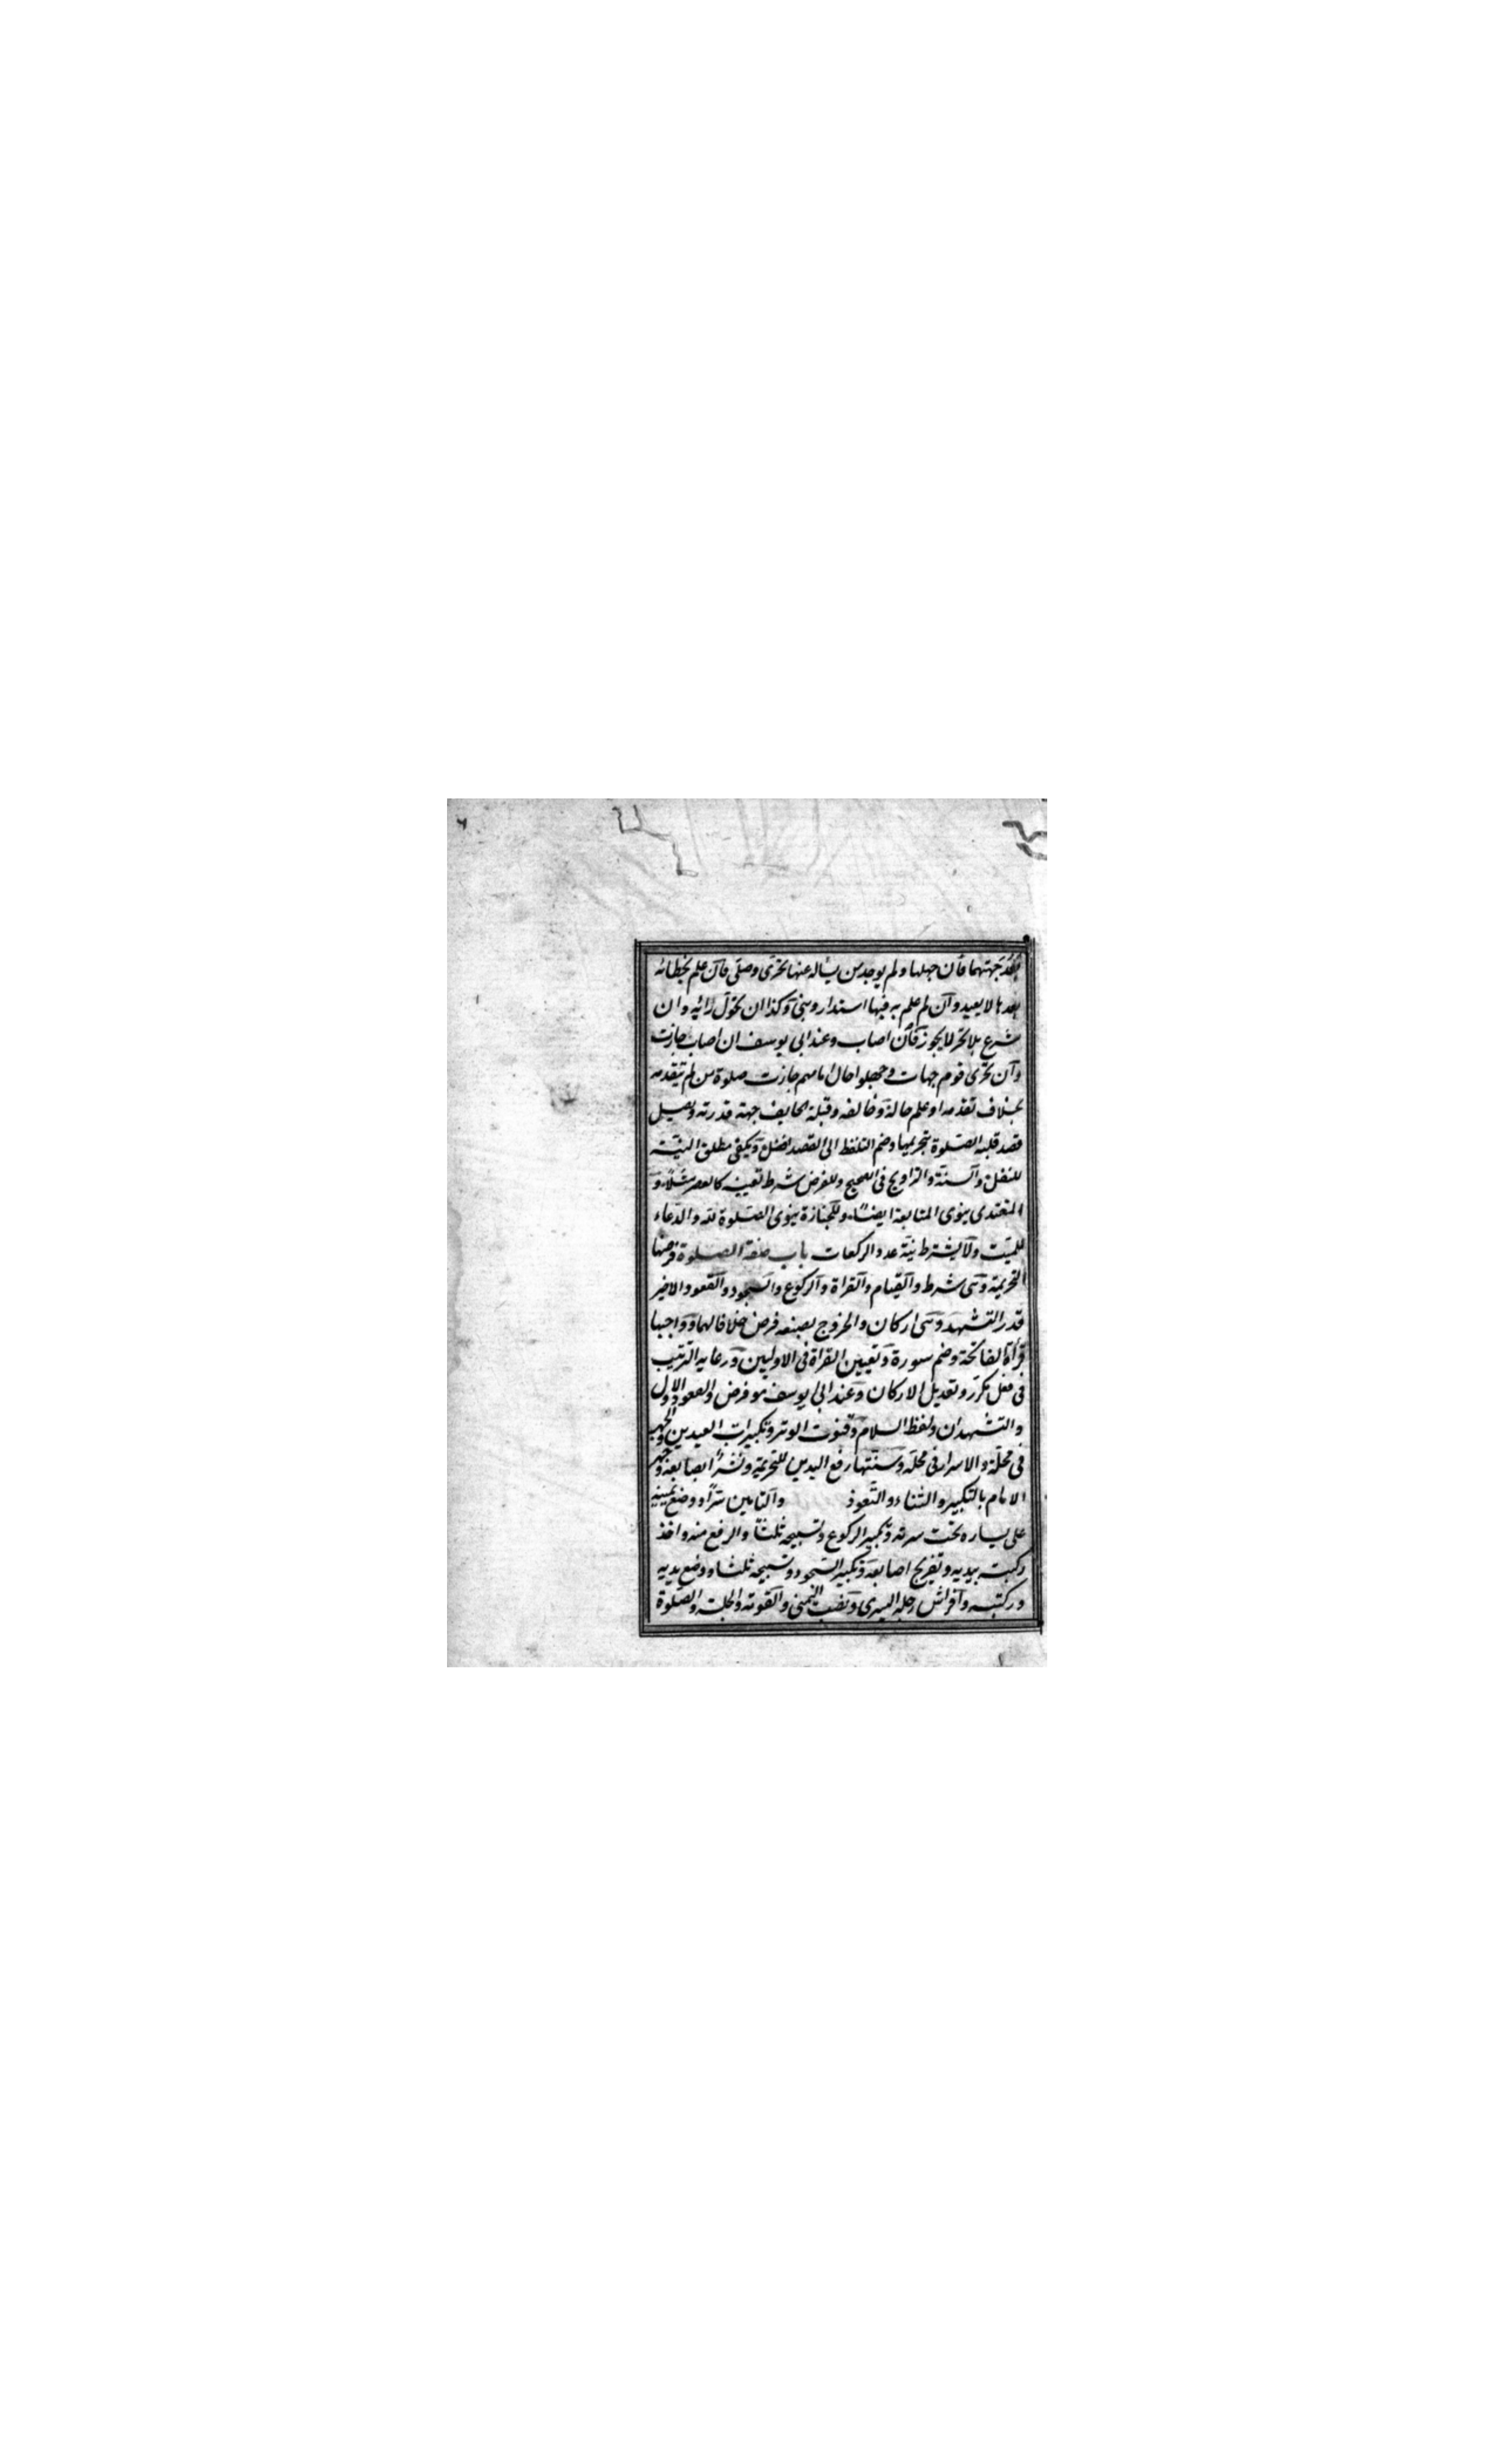 بعد جهتها فان جهلها ولم يوجد من يسأله عنها تحرى وصلى فان علم بخطائه
بعدها لا يعيد وان لم علم به فيها استدار وبنى وكذا ان تحول رائه وان
شرع بلا تحر لا يجوز فان اصاب وعند ابى يوسف ان اصاب جازت
وان تحرى قوم جهات وجهلوا حال امامهم جازت صلوة من لم يتقدمه
بخلاف تقدمه او علم حاله وخالفه وقبلة الخايف جهة قدرته ويصل
قصد قلبه الصلوة بتحريمها وضم التلفظ الى القصد افضل ويكفى مطلق النية
للنفل والسنة والتراويح فى الصحيح وللفرض شرط تعيينه كالعصر مثلا و
المقتدى ينوى المتابعة ايضا وللجنازة ينوى الصلوة لله والدعاء
للميت ولا يشترط نية عدد الركعات باب صفة الصلوة فرضها
التحريمة وهى شرط والقيام والقراة والركوع والسجود والقعود الاخير
قدر التشهد وهى اركان والخروج بصنعه فرض خلافا لهما وواجبها
قرأة الفاتحة وضم سورة وتعيين القراة فى الاوليين ورعاية الترتيب
فى فعل تكرر وتعديل الاركان وعند ابى يوسف هو فرض والقعود الاول
والتشهدان ولفظ السلام وقنوت الوتر وتكبيرات العيدين والجهر
فى محله والاسرار فى محله وسنتها رفع اليدين للتحريمة ونشر اصابعه وجهر
الامام بالتكبير والثناء والتعوذ والتامين سرا ووضع يمينه
على يساره تحت سرته وتكبير الركوع وتسبيحه ثلثا والرفع منه واخذ
ركبته بيديه وتفريج اصابعه وتكبير السجود وتسبيحه ثلثا ووضع يديه
وركبتيه وافراش رجله اليسرى ونصب اليمنى والقومة والجلسة والصلوة